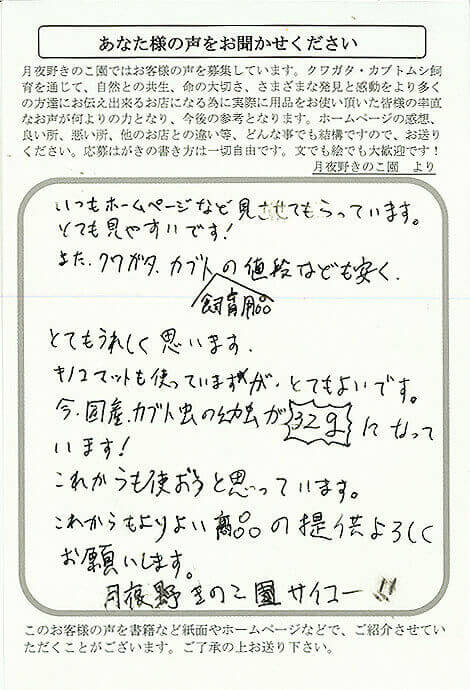 あなた様の声をお聞かせください
月夜野きのこ園ではお客様の声を募集しています。クワガタ・カブトムシ飼
育を通じて、自然との共生、命の大切さ、さまざまな発見と感動をより多く
の方達にお伝え出来るお店になる為に実際に用品をお使い頂いた皆様の率直
なお声が何よりの力となり、今後の参考となります。ホームページの感想、
良い所、悪い所、他のお店との違い等、どんな事でも結構ですので、お送り
ください。応募はがきの書き方は一切自由です。文でも絵でも大歓迎です！
月夜野きのこ園 より
いつもホームページなど見させてもらっています。
とても見やすいです！
また、クワガタ、カブトの値段なども安く、
飼育用品
とてもうれしく思います、
キノコマットも使っていますが、とてもよいです。
今、国産カブト虫の幼虫が32gになって
います！
これからも使おうと思っています。
これからもよりよい商品の提供よろしく
お願いします。
月夜野きのこ園サイコー!!
このお客様の声を書籍など紙面やホームページなどで、ご紹介させてい
ただくことがございます。ご了承の上お送り下さい。